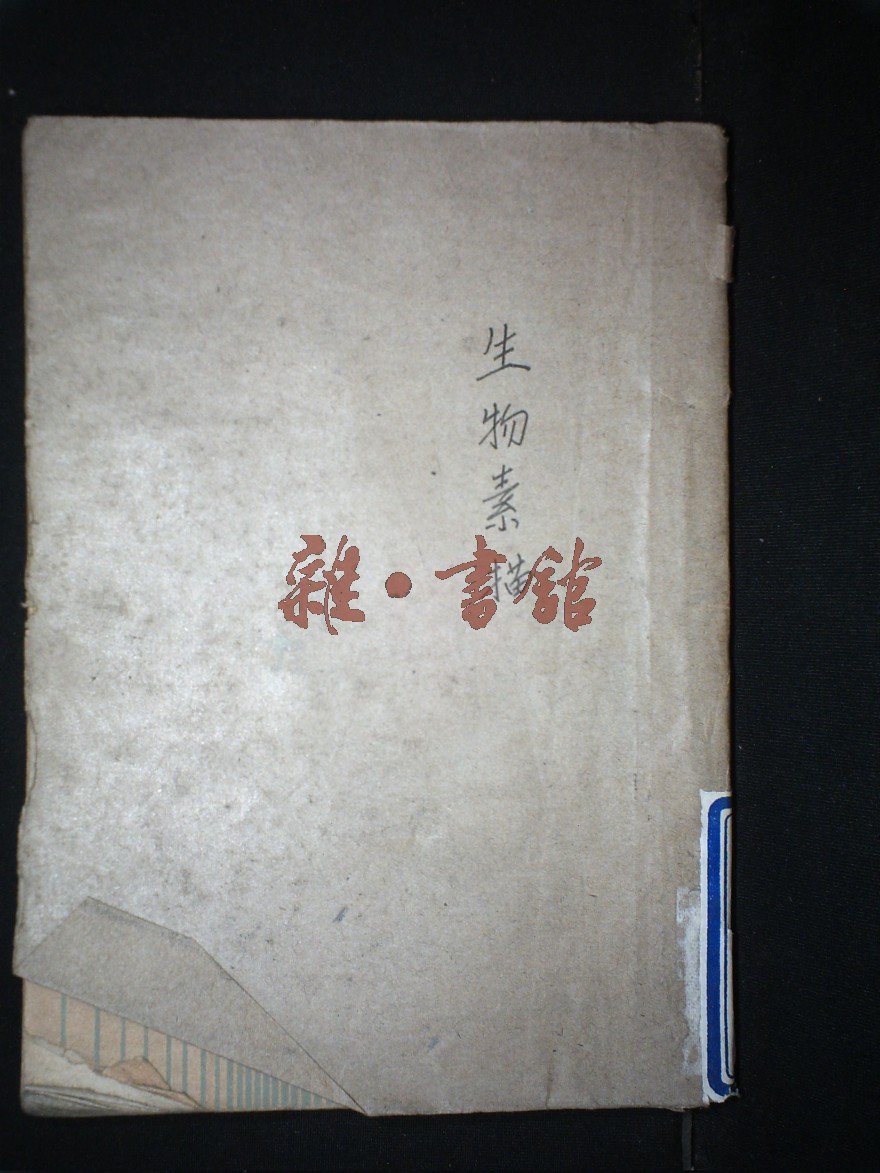 生物素描
雜·書館